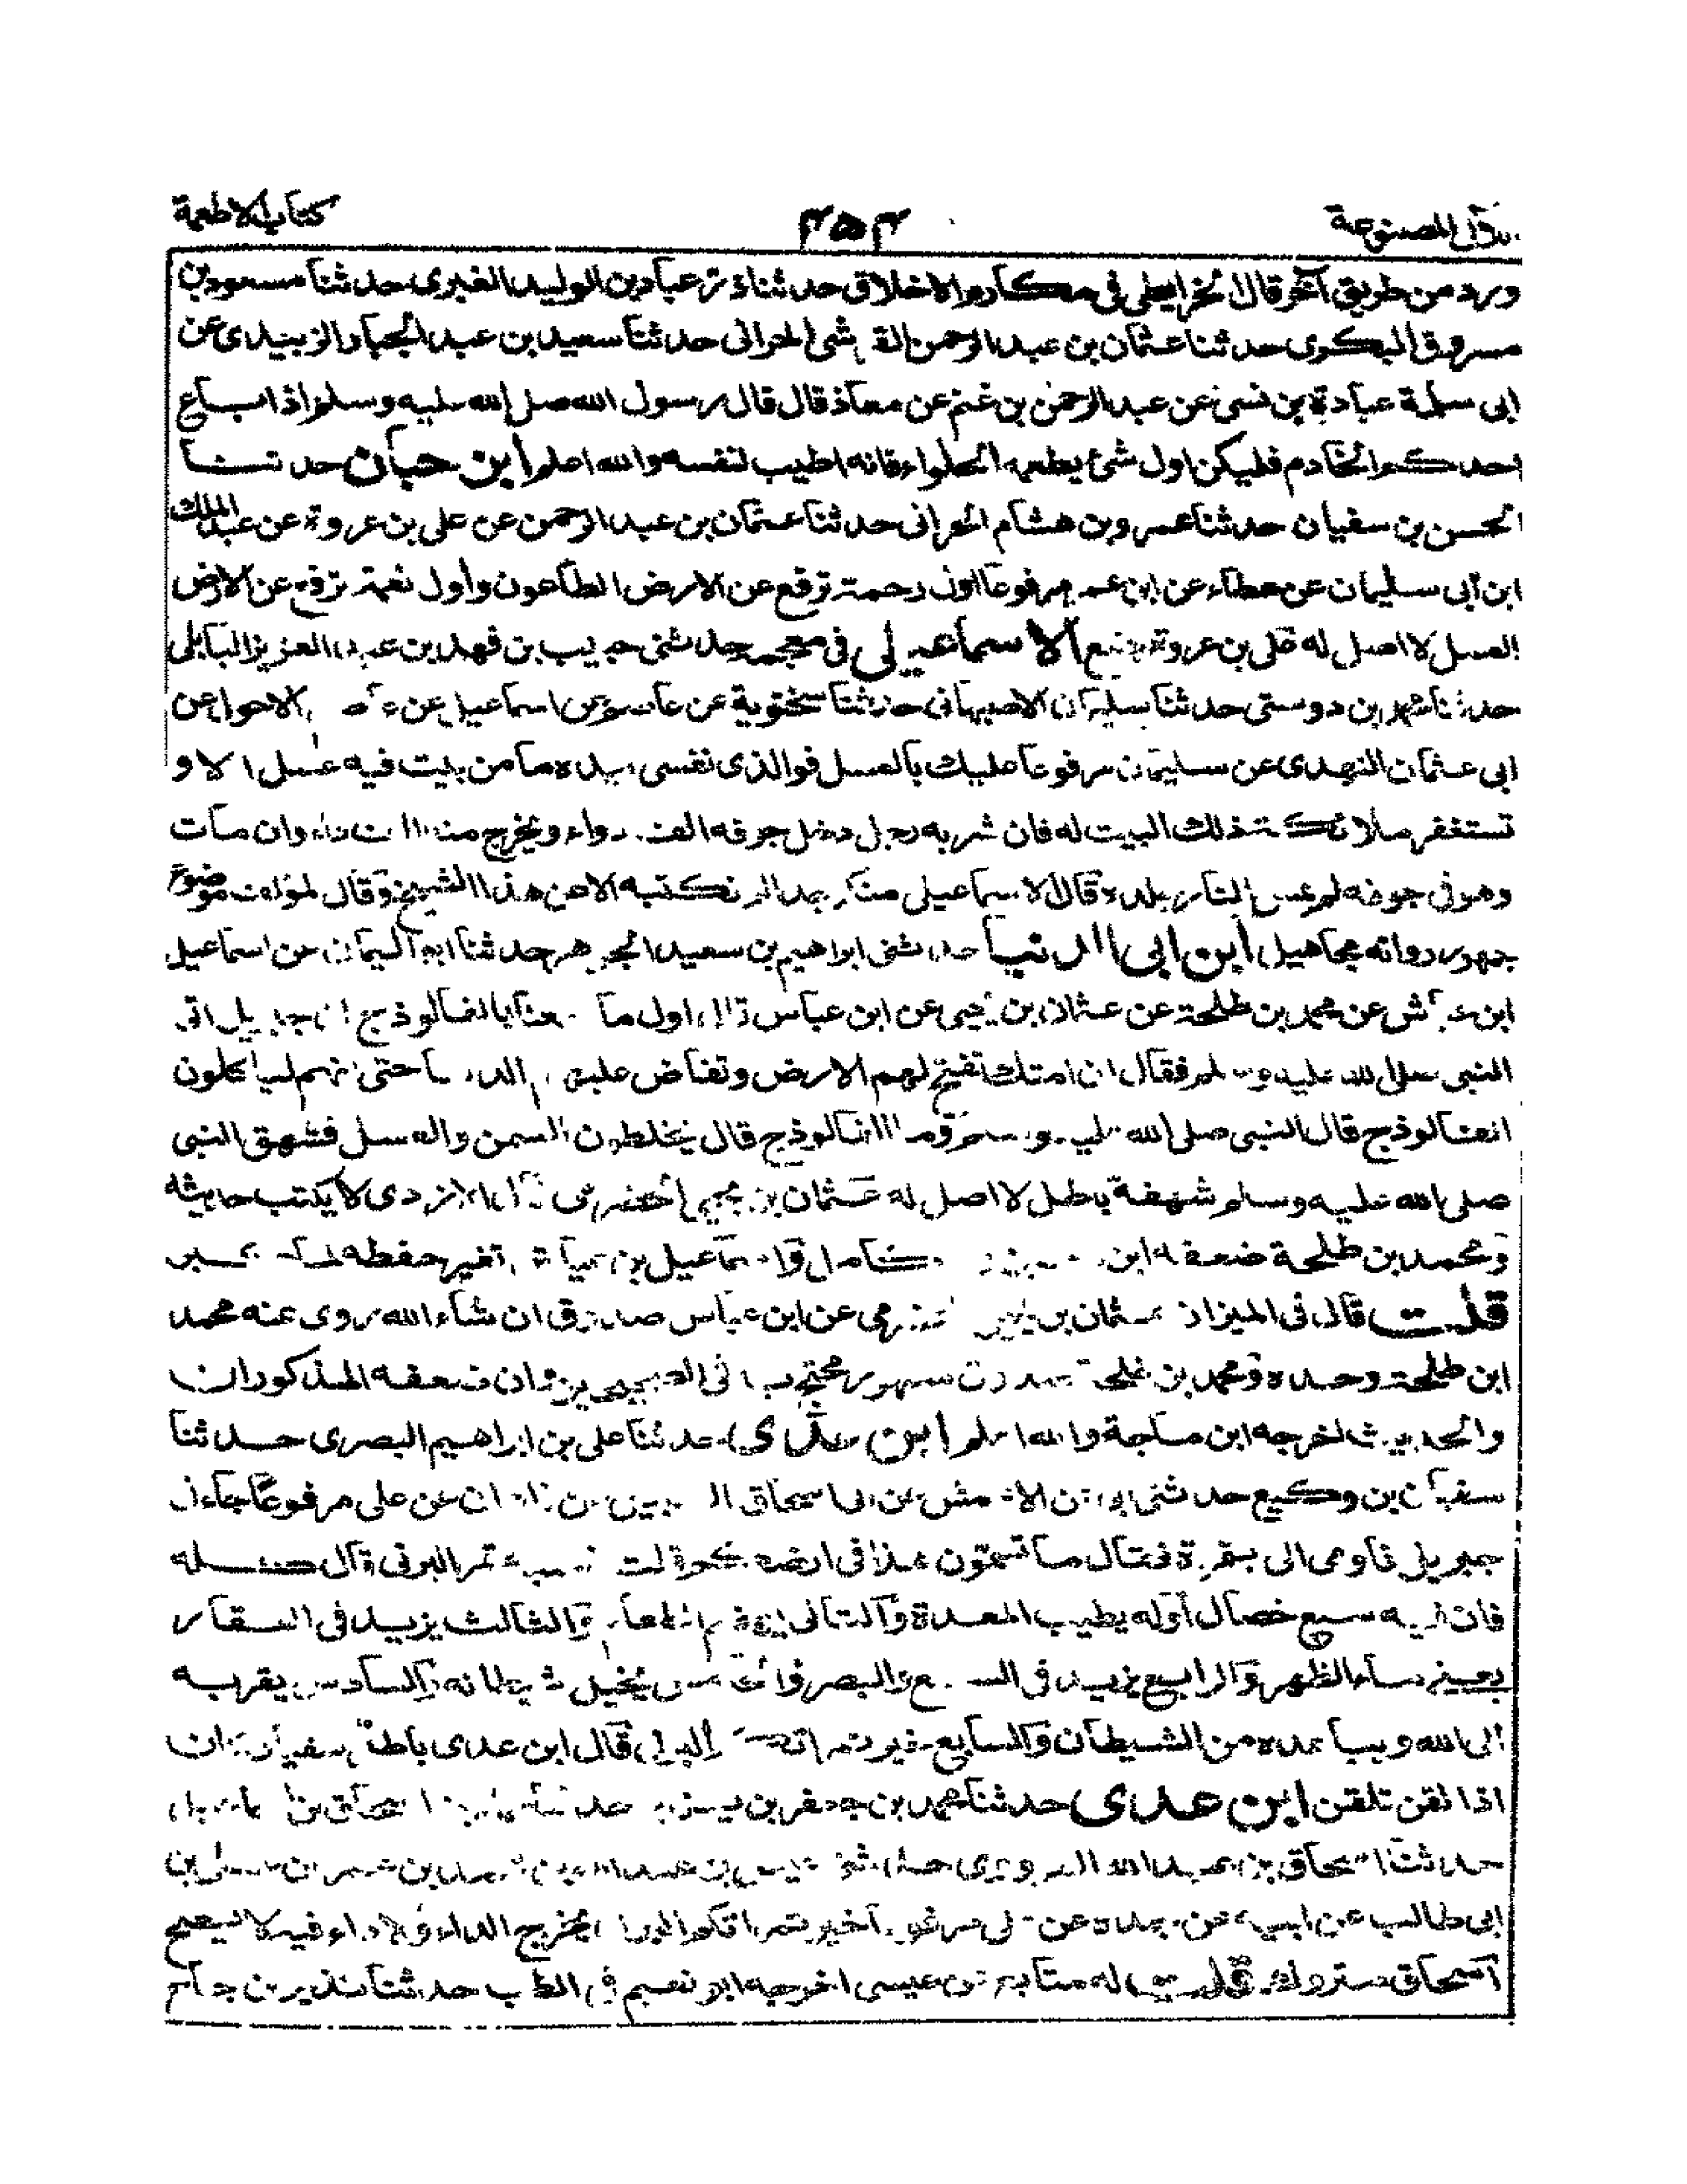 كتاب الاطعمة
۴۵۴
المصنوعة
ورد من طريق آخر قال الخرايطي في مكارم الاخلاق حدثنا عباد بن الوليد الغبري حدثنا مسعود بن
مسروق البكري حدثنا عثمان بن عبد الرحمن الحراني حدثنا سعيد بن عبد الجبار الزبيدي عن
ابي سلمة عبادة بن نسي عن عبد الرحمن بن غنم عن معاذ قال قال رسول الله صلى الله عليه وسلم اذا ابتاع
احدكم الخادم فليكن اول شئ يطعمه الحلواء فانه اطيب لنفسه والله اعلم ابن حبان حدثنا
الحسن بن سفيان حدثنا عمرو بن هشام الحراني حدثنا عثمان بن عبد الرحمن عن علي بن عروة عن عبد الملك
ابن ابي سليمان عن عطاء عن ابن عمر مرفوعا اول رحمة ترفع عن الارض الطاعون واول نعمة ترفع عن الارض
العسل لا اصل له علي بن عروة يضع الاسماعيلي في معجمه حدثني حبيب بن فهد بن عبد العزيز البابلي
حدثنا محمد بن دوستي حدثنا سليمان الاصبهاني حدثنا سختوية عن عاصم بن اسماعيل عن الاحول عن
ابي عثمان النهدي عن سليمان مرفوعا عليك بالعسل فوالذي نفسي بيده ما من بيت فيه عسل الا و
تستغفر ملائكة ذلك البيت له فان شربه رجل دخل جوفه الف دواء ويخرج منه داء وان مات
وهو في جوفه لم يمس النار جلده قال الاسماعيلي منكر جدا لم نكتبه الا من هذا الشيخ وقال المؤلف موضوع
جمهور رواته مجاهيل ابن ابي الدنيا حدثني ابراهيم بن سعيد الجوهري حدثنا ابو اليمان عن اسماعيل
ابن عياش عن محمد بن طلحة عن عثمان بن يحيى عن ابن عباس قال اول ما سمعنا بالفالوذج ان جبريل اتى
النبي صلى الله عليه وسلم فقال ان امتك تفتح لهم الارض وتفاض عليهم الدنيا حتى انهم لياكلون
الفالوذج قال النبي صلى الله عليه وسلم وما الفالوذج قال يخلطون السمن والعسل فشهق النبي
صلى الله عليه وسلم شهقة باطل لا اصل له عثمان بن يحيى الحضرمي قال الازدي لا يكتب حديثه
ومحمد بن طلحة ضعفه ابن معين كامل واسماعيل بن عياش تغير حفظه لما كبر
قلت قال في الميزان عثمان بن يحيى الحضرمي عن ابن عباس صدوق ان شاء الله روى عنه محمد
ابن طلحة وحده ومحمد بن طلحة صدوق مشهور محتج به في الصحيحين وان ضعفه المذكوران
والحديث اخرجه ابن ماجة والله اعلم ابن عدي حدثنا علي بن ابراهيم البصري حدثنا
سفيان بن وكيع حدثني ابي عن الاعمش عن ابي اسحاق عن زاذان عن علي مرفوعا جاءني
جبريل فاومى الى بقرة فقال ما تسمون هذا في ارضكم قلت تمر البرني قال كله
فان فيه سبع خصال اوله يطيب المعدة والثاني يهضم الطعام والثالث يزيد في الفقار
يعني ماء الظهر والرابع يزيد في السمع والبصر والخامس يخبل شيطانه والسادس يقربه
الى الله ويباعده من الشيطان والسابع خير تمراتكم البرني قال ابن عدي باطل سفيان كان
اذا لقن تلقن ابن عدي حدثنا محمد بن جعفر بن يزيد حدثنا
حدثنا اسحاق بن عبد الله حدثني عيسى بن عبد الله بن محمد بن عمر بن علي بن
ابي طالب عن ابيه عن جده عن علي مرفوعا خير تمراتكم البرني يخرج الداء ولا داء فيه لا يصح
اسحاق متروك قلت له متابع عن عيسى اخرجه ابو نعيم في الطب حدثنا نذير بن جناح